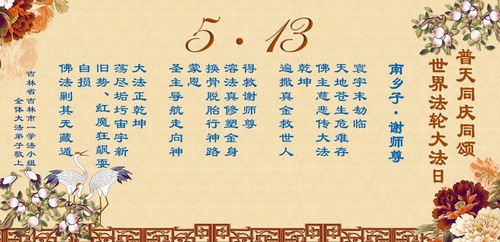 5·13
普天同庆同颂
世界法轮大法日
南乡子·谢师尊
寰宇末劫临
天地苍生危难存
佛主慈悲传大法
乾坤
遍撒真金救世人
得救谢师尊
溶法真修塑金身
换骨脱胎行神路
蒙恩
圣主导航走向神
大法正乾坤
荡尽垢圬宙宇新
旧势、红魔狂飙耍
自损
佛法剩其无藏遁
吉林省吉林市一学法小组
全体大法弟子敬上